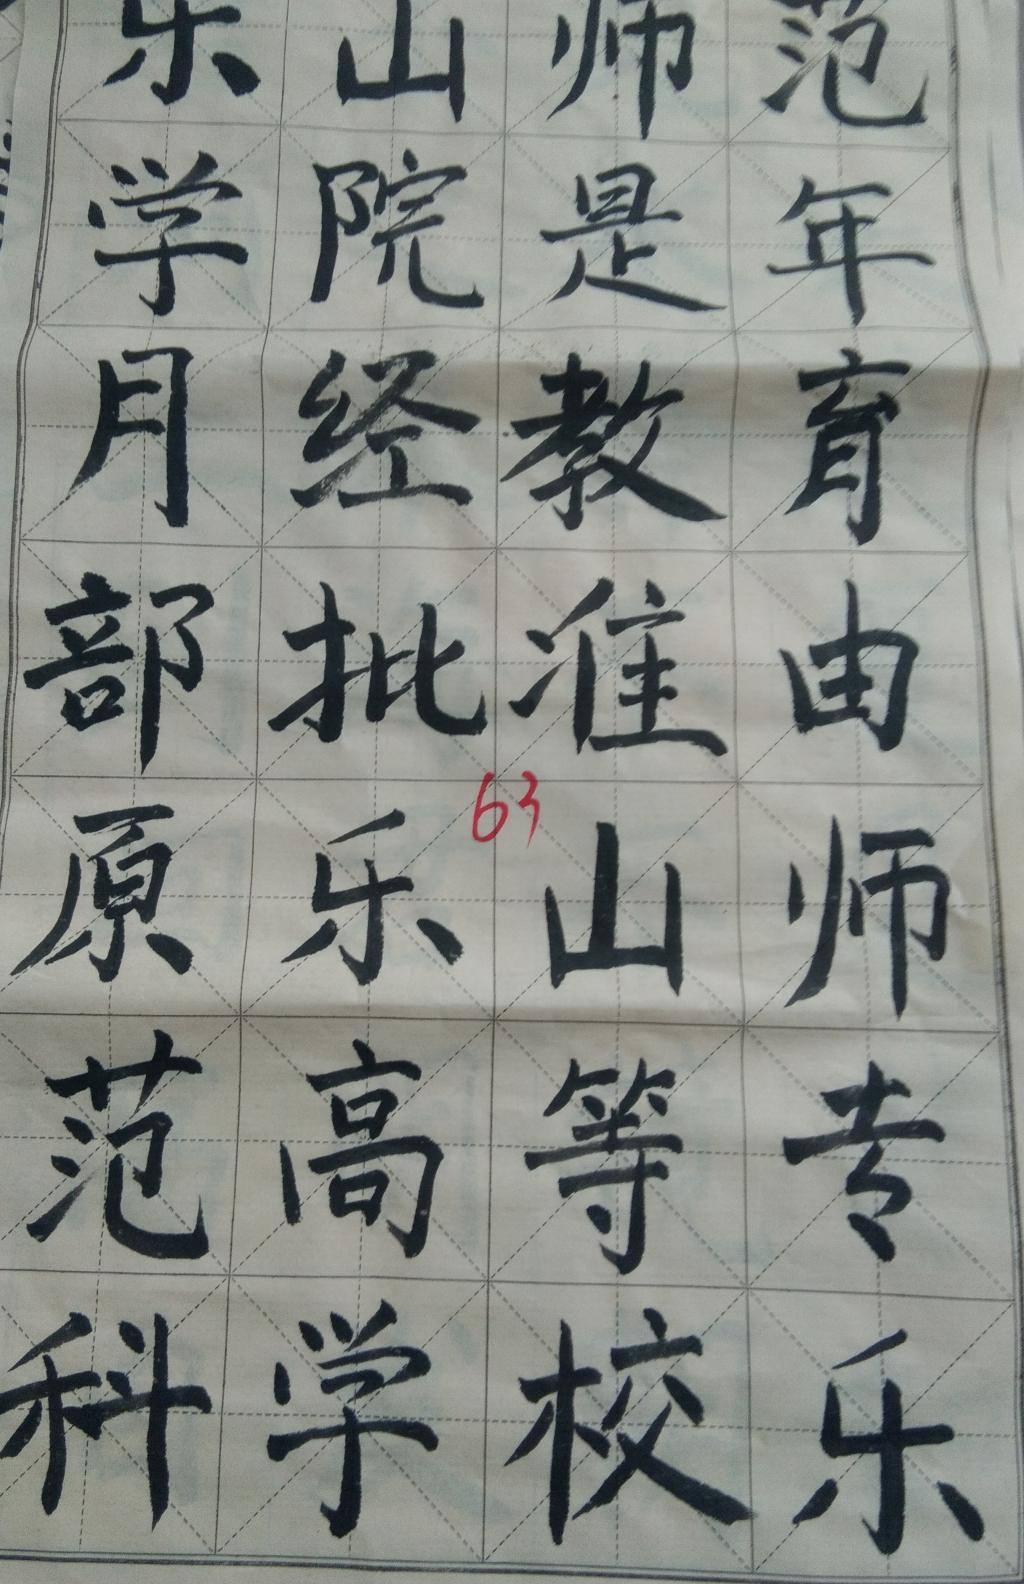 乐山师范
学院是年
月经教育
部批准由
63
原乐山师
范高等专
科学校乐